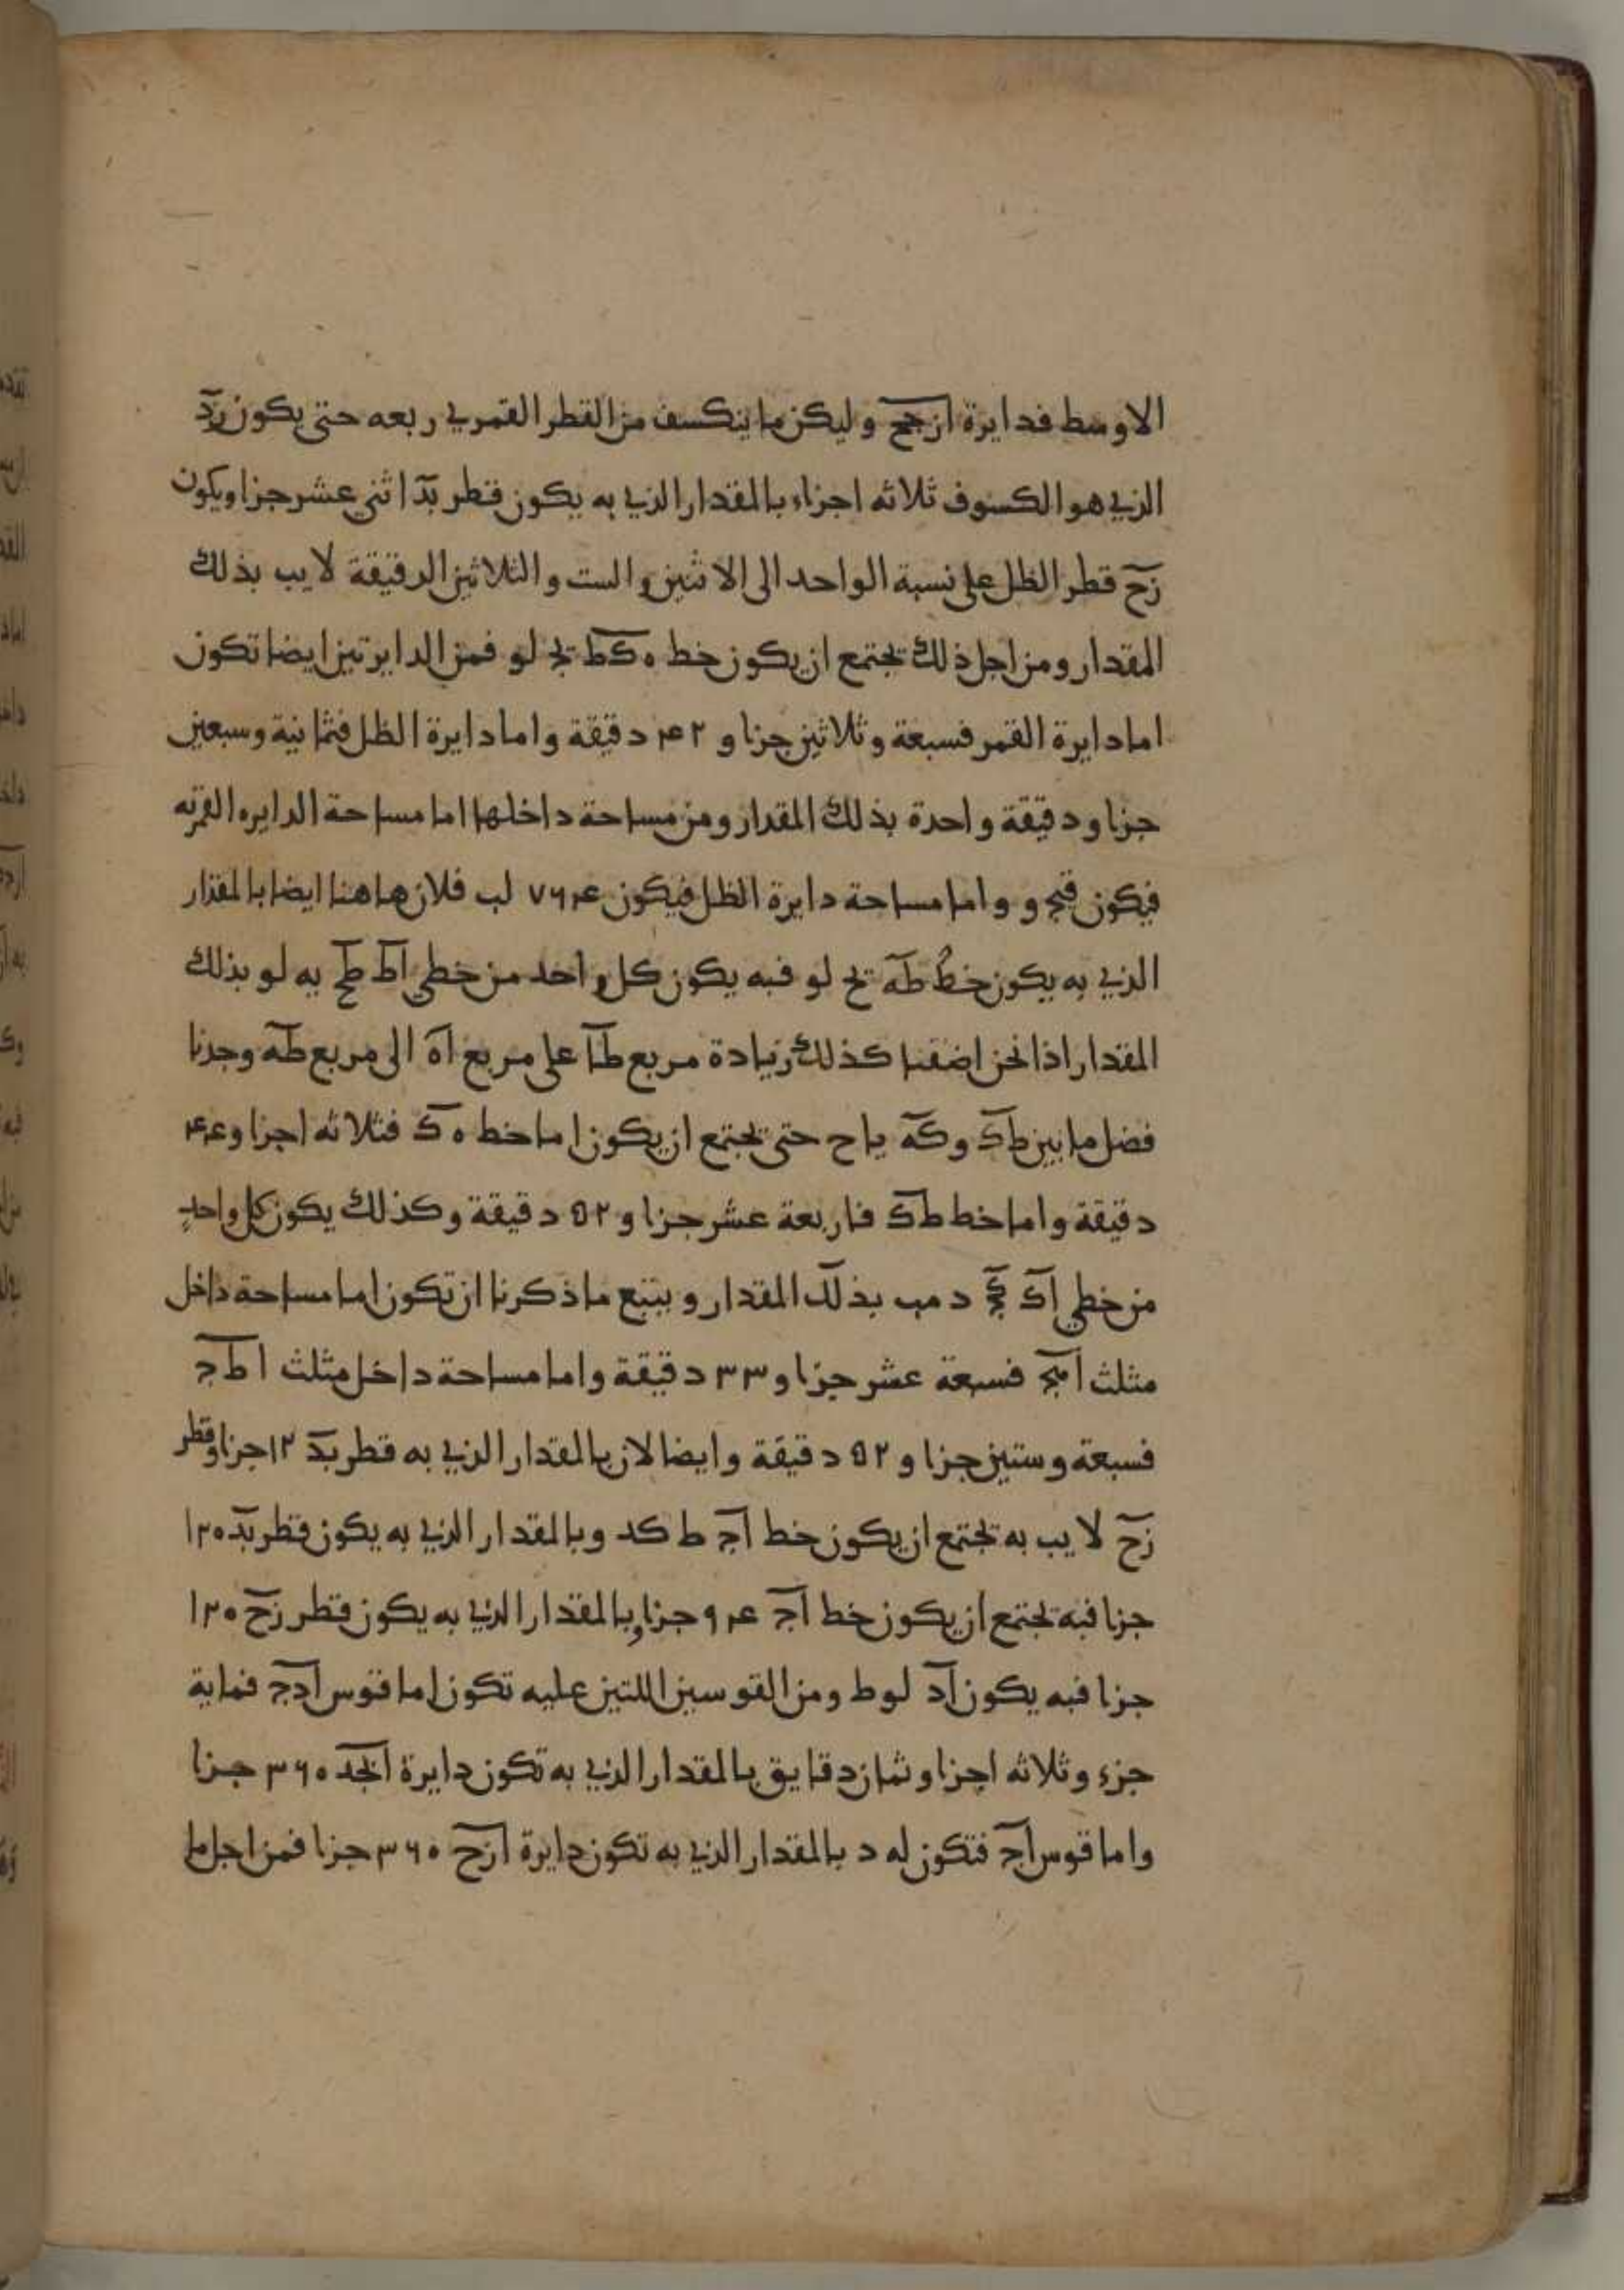 الاوسط فدايرة ازجح وليكن ما ينكسف من القطر القمري ربعه حتى يكون زد
الذي هو الكسوف ثلاثه اجزاء بالمقدار الذي به يكون قطر بد اثني عشر جزا ويكون
زح قطر الظل على نسبة الواحد الى الاثنين والست والثلاثين الدقيقة لا يب بذلك
المقدار ومن اجل ذلك تجتمع ان يكون خط ه كط يج لو فمن الدايرتين ايضا تكون
اما دايرة القمر فسبعة وثلاثين جزا و ۴۲ دقيقة واما دايرة الظل فثمانية وسبعين
جزا ودقيقة واحدة بذلك المقدار ومن مساحة داخلها اما مساحة الدايره القمريه
فيكون قيج و واما مساحة دايرة الظل فيكون ۷۶۴ لب فلان هاهنا ايضا بالمقدار
الذي به يكون خط طه يج لو فبه يكون كل واحد من خطي اط طج يه لو بذلك
المقدار اذا نحن اضفنا كذلك زيادة مربع طا على مربع اه الى مربع طه وجدنا
فضل ما بين طك وكه يا ح حتى تجتمع ان يكون اما خط ه ك فثلاثه اجزا و ۴۴
دقيقة واما خط طك فاربعة عشر جزا و ۵۲ دقيقة وكذلك يكون كل واحد
من خطي اك كج د مب بذلك المقدار ويتبع ما ذكرنا ان تكون اما مساحة داخل
مثلث اهج فسبعة عشر جزا و ۳۳ دقيقة واما مساحة داخل مثلث ا ط ج
فسبعة وستين جزا و ۵۲ دقيقة وايضا لان بالمقدار الذي به قطر بد ۱۲ جزا وقطر
زح لا يب به تجتمع ان يكون خط اج ط كد وبالمقدار الذي به يكون قطر بد ۱۲۰
جزا فبه تجتمع ان يكون خط اج ۹۴ جزا وبالمقدار الذي به يكون قطر زح ۱۲۰
جزا فبه يكون اد لو ط ومن القوسين اللتين عليه تكون اما قوس ادج فماية
جزء وثلاثه اجزا وثمان دقايق بالمقدار الذي به تكون دايرة ابجد ۳۶۰ جزا
واما قوس اج فتكون له د بالمقدار الذي به تكون دايرة ازح ۳۶۰ جزا فمن اجل ما